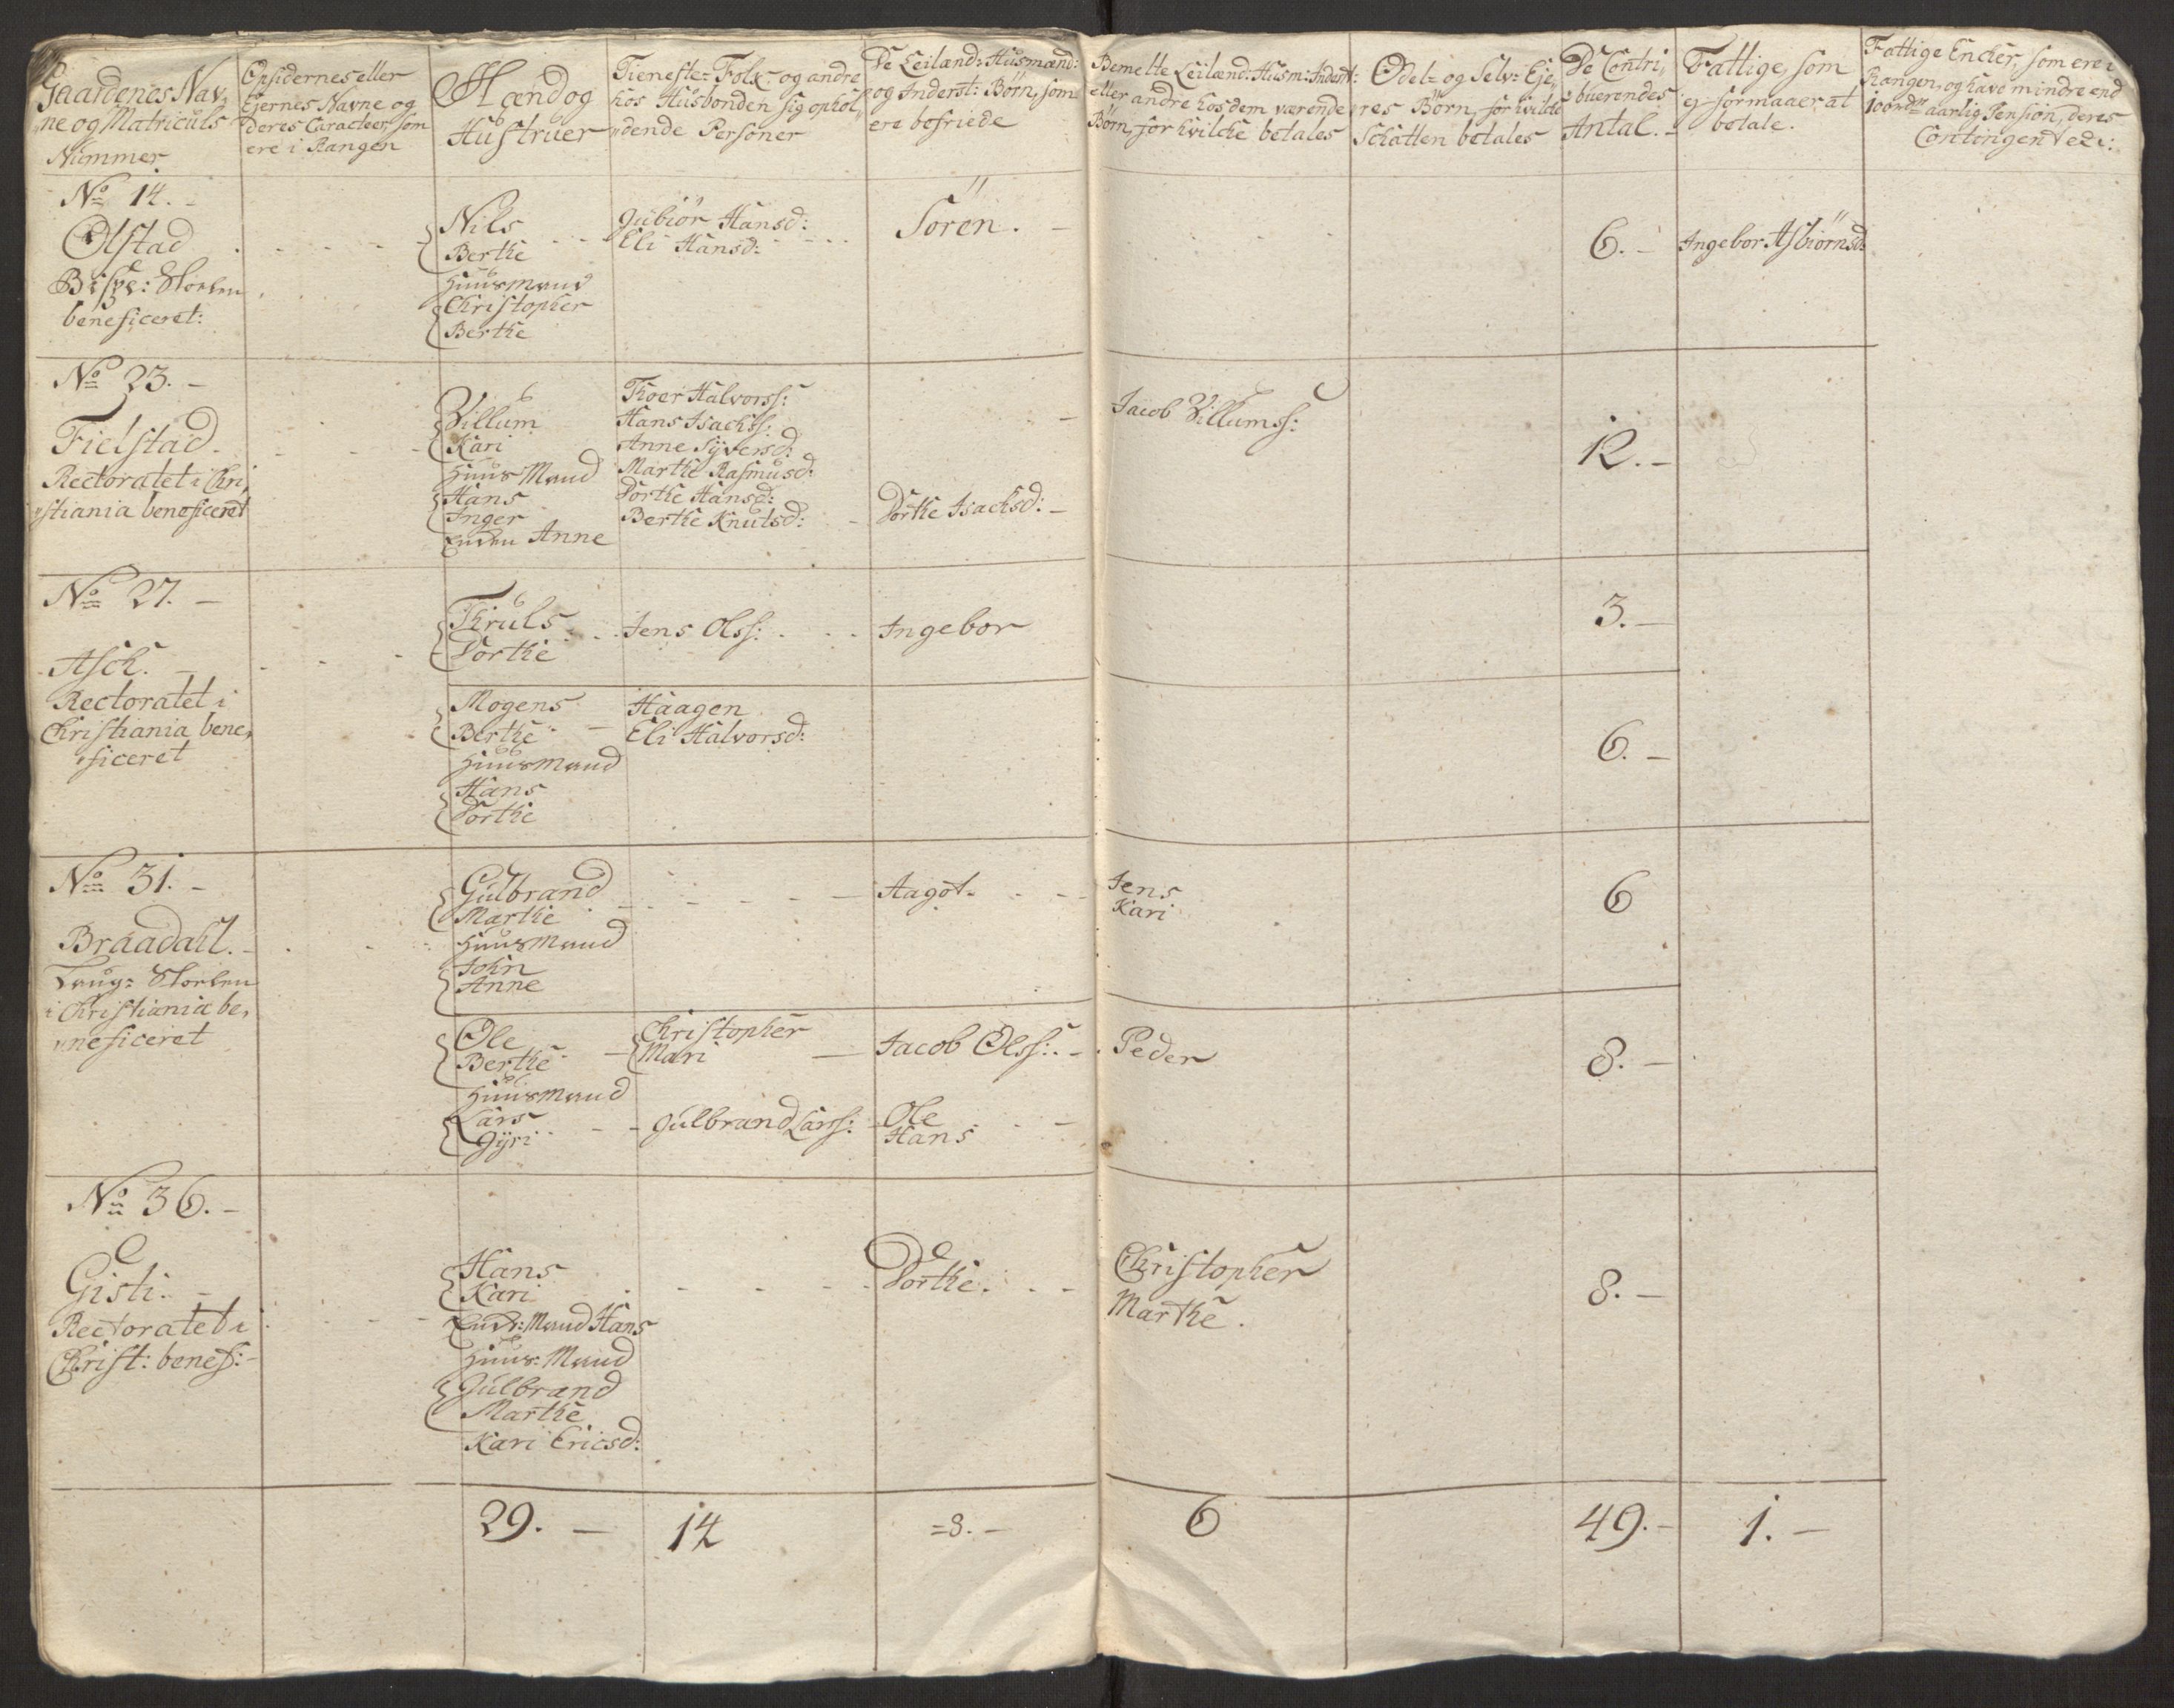 Gaardenes Nav,
ne og Matriculs
Nummer
Opsidernes eller
Ejernes Navne og
deres Caracteer, som
ere i Rangen
Mænd og
Hustruer
Tieneste-Folk og andre
hos Husbonden sig ophol,
dende Personer
De Leilænd: Husmænd:
og Inderst: Børn, som
ere befriede
Bemelte Leilænd: Husm: Inderst:
eller andre hos dem værende
Børn, for hvilche betales
Odel- og Selv- Eje,
res Børn, for hvilche
Schatten betales
De Contri,
buerendes
Antal.
Fattige, som
ej formaaer at
betale.
Fattige Encker, som ere i
Rangen, og have mindre end
100 rdr aarlig Pension, deres
Contingent
No 14.
Olstad
Bispe: Stolen
beneficeret:
Nils
Berthe
Huusmand
Christopher
Berthe
Gubiør Hansd:
Eli Hansd:
Søren.
6.
Ingebor Asbiørnsd:
No 23.
Fielstad.
Rectoratet i Chri,
stiania beneficeret
Villum
Kari
Huus Mand
Hans
Inger
Enken Anne
Thoer Halvorss:
Hans Isachss:
Anne Syversd:
Marthe Rasmusd:
Dorthe Hansd:
Berthe Knutsd:
Dorthe Isachsd:
Jacob Villumss:
12.
No 27.
Asch.
Rectoratet i
Christiania bene,
ficeret
Thruls
Dorthe
Jens Olss:
Ingebor
3.
Mogens
Berthe
Huusmand
Hans
Dorthe
Haagen
Eli Halvorsd:
6.
No 31.
Braadahl.
Laug- Stolen
i Christiania be,
neficeret
Gulbrand
Marthe
Huusmand
John
Anne
Aagot
Jens
Kari
6
Ole
Berthe
Huusmand
Lars
Gyri
Christopher
Mari
Gulbrand Larss:
Jacob Olss:
Ole
Hans
Peder
8.
No 36.
Gisti.
Rectoratet i
Christ: benef:
Hans
Kari
Enke: Mand Hans
Huus: Mand
Gulbrand
Marthe
Kari Ericsd:
Dorthe.
Christopher
Marthe.
8.
29.
14
=8.
6
49.
1.